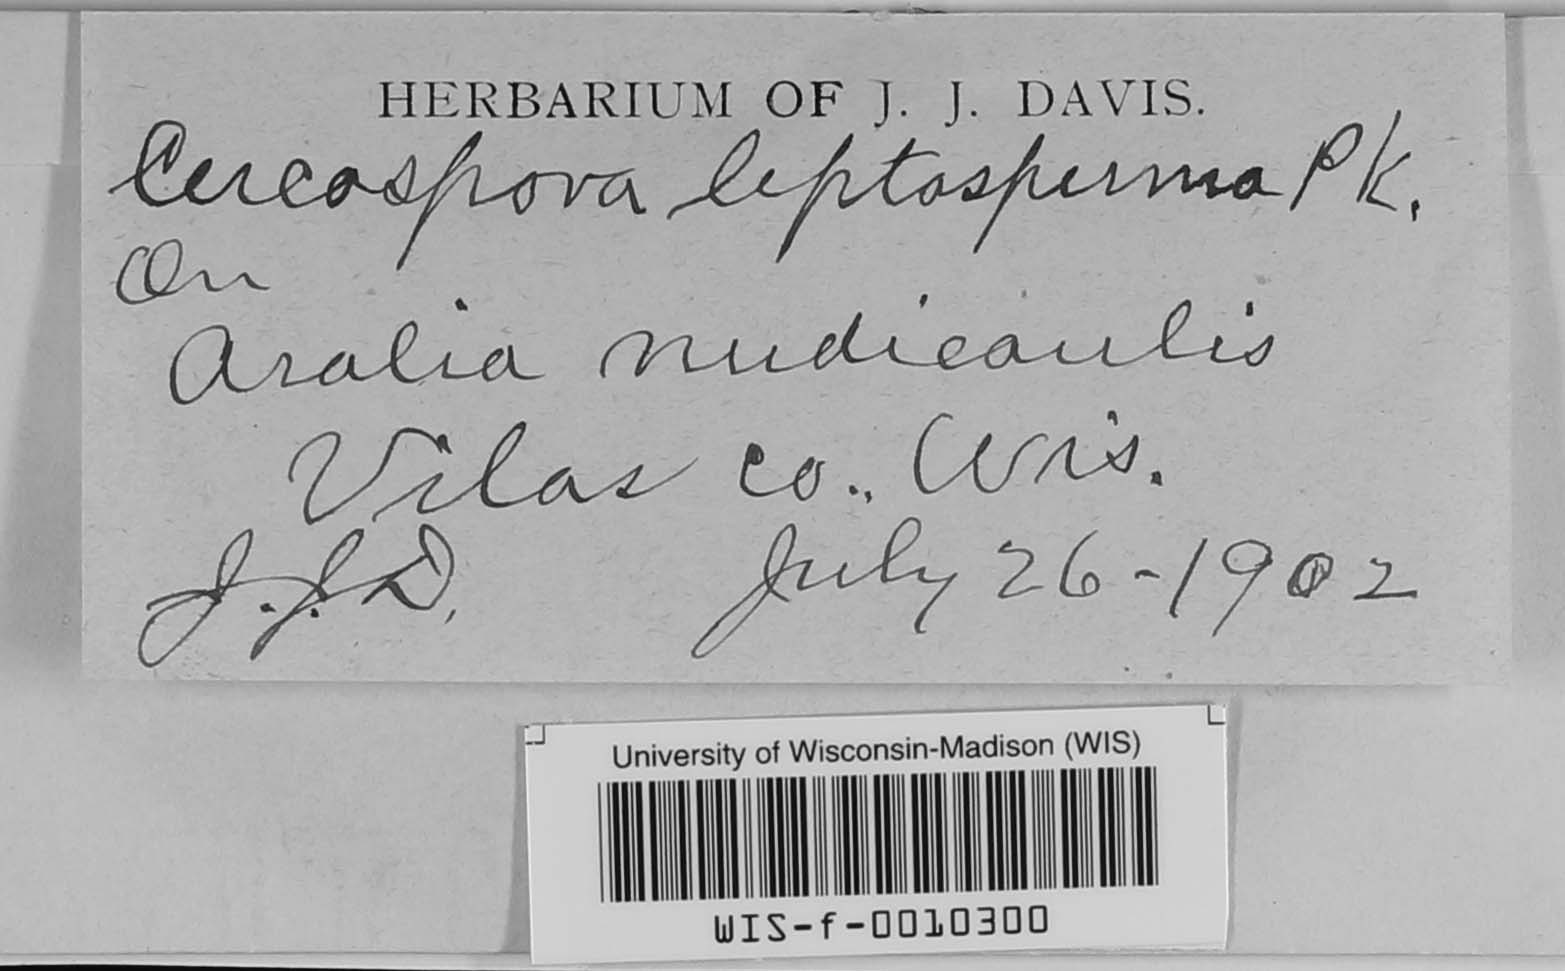 HERBARIUM OF J. J. DAVIS.
Cercospora leptosperma Pk.
On
Aralia nudicaulis
Vilas co., Wis.
J.J.D. July 26-1902
University of Wisconsin-Madison (WIS)
WIS-f-0010300